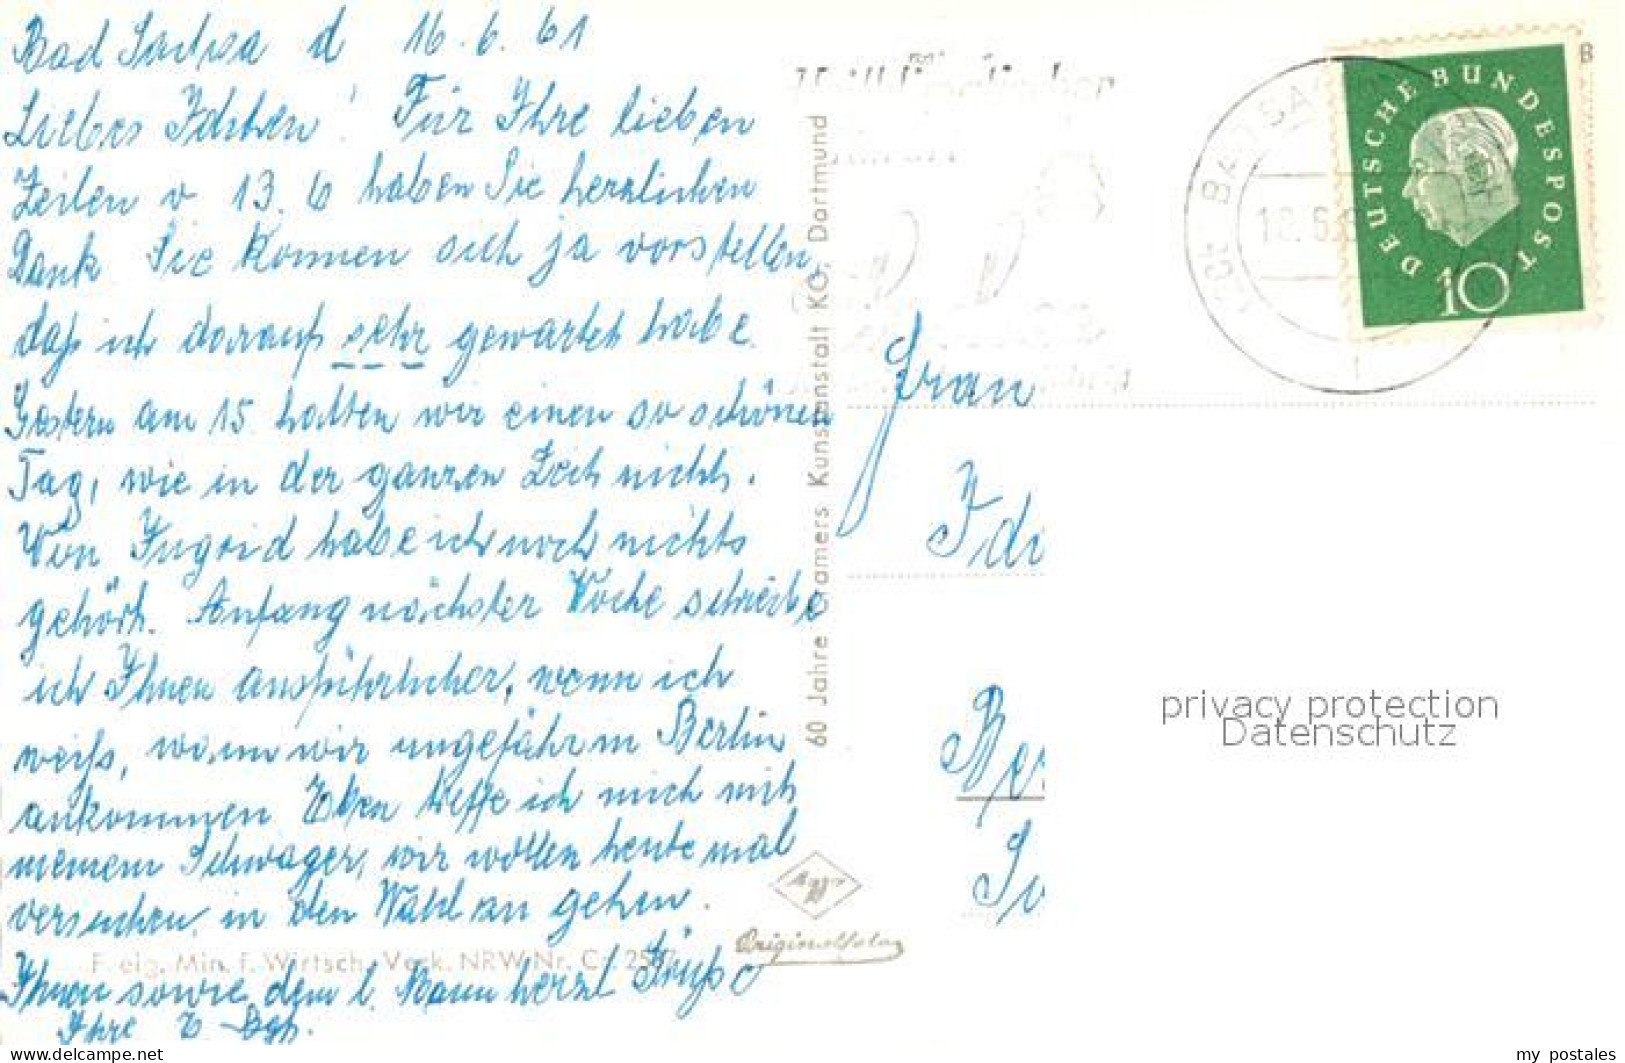 Bad Sachsa d 16.6.61
Liebes Idchen! Für Ihre lieben
Zeilen v 13.6 haben Sie herzlichen
Dank. Sie können sich ja vorstellen,
daß ich darauf sehr gewartet habe.
Gestern am 15. hatten wir einen so schönen
Tag, wie in der ganzen Zeit nicht.
Von Ingrid habe ich noch nichts
gehört. Anfang nächster Woche schreibe
ich Ihnen ausführlicher, wenn ich
weiß, wann wir ungefähr in Berlin
ankommen. Eben treffe ich mich mit
meinem Schwager, wir wollen heute mal
versuchen in den Wald zu gehen.
Ihnen sowie dem l. Mann herzl Grüße
Ihre E
60 Jahre Cramers Kunstanstalt KG, Dortmund
Originalfoto
F. eig. Min. f. Wirtsch. Verk. NRW Nr.
BAD SACHSA
18.6.6
DEUTSCHE BUNDESPOST
10
B
Frau
Id
Be
privacy protection
Datenschutz
delcampe.net
my_postales